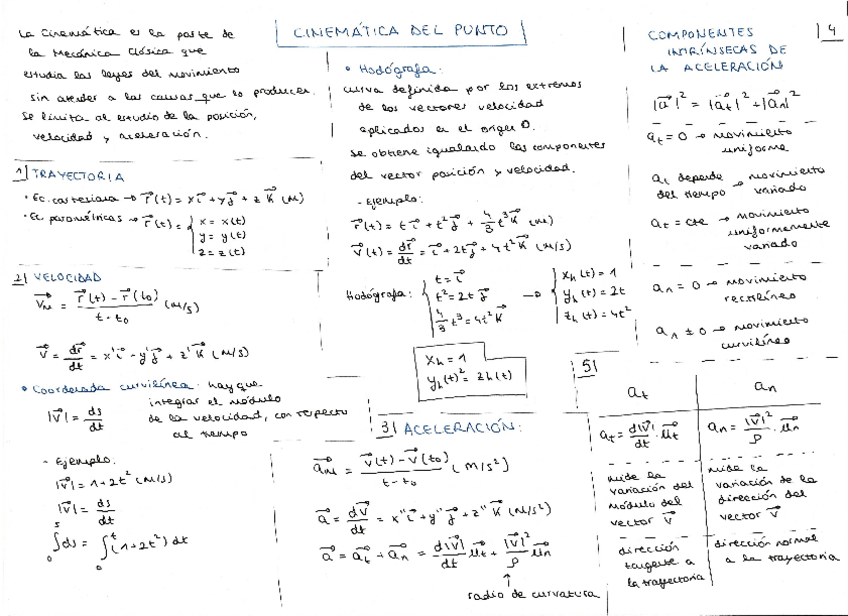 CINEMÁTICA DEL PUNTO
La Cinemática es la parte de
la Mecánica Clásica que
estudia las leyes del movimiento
sin atender a las causas que lo producen.
Se limita al estudio de la posición,
velocidad y aceleración.
1| TRAYECTORIA
• Ec. cartesiana → r⃗(t) = xi⃗ + yj⃗ + zk⃗ (M)
• Ec paramétricas → r⃗(t) = { x = x(t)
y = y(t)
z = z(t)
2| VELOCIDAD
v⃗M = (r⃗(t) - r⃗(t₀)) / (t - t₀) (M/s)
v⃗ = dr⃗/dt = x'i⃗ - y'j⃗ + z'k⃗ (M/s)
• Coordenada curvilínea: hay que
integrar el módulo
de la velocidad, con respecto
al tiempo
|v⃗| = ds/dt
- Ejemplo:
|v⃗| = 1+2t² (M/s)
|v⃗| = ds/dt
∫₀ˢ ds = ∫₀ᵗ (1+2t²) dt
• Hodógrafa:
curva definida por los extremos
de los vectores velocidad
aplicados en el origen O.
Se obtiene igualando las componentes
del vector posición y velocidad.
- Ejemplo:
r⃗(t) = ti⃗ + t²j⃗ + 4/3 t³k⃗ (M)
v⃗(t) = dr⃗/dt = i⃗ + 2tj⃗ + 4t²k⃗ (M/s)
Hodógrafa: { t = i⃗ → { xh(t) = 1
t² = 2t j⃗ yh(t) = 2t
4/3 t³ = 4t² k⃗ zh(t) = 4t²
xh = 1
yh(t)² = zh(t)
3| ACELERACIÓN:
a⃗M = (v⃗(t) - v⃗(t₀)) / (t - t₀) (M/s²)
a⃗ = dv⃗/dt = x''i⃗ + y''j⃗ + z''k⃗ (M/s²)
a⃗ = a⃗t + a⃗n = d|v⃗|/dt u⃗t + |v⃗|²/ρ u⃗n
↑
radio de curvatura
|4
COMPONENTES
INTRÍNSECAS DE
LA ACELERACIÓN
|a⃗|² = |a⃗t|² + |a⃗n|²
at = 0 → movimiento
uniforme
at depende → movimiento
del tiempo variado
at = cte → movimiento
uniformemente
variado
an = 0 → movimiento
rectilíneo
an ≠ 0 → movimiento
curvilíneo
5|
at an
a⃗t = d|v⃗|/dt · u⃗t a⃗n = |v⃗|²/ρ · u⃗n
mide la mide la
variación del variación de la
módulo del dirección del
vector v⃗ vector v⃗
dirección dirección normal
tangente a a la trayectoria
la trayectoria